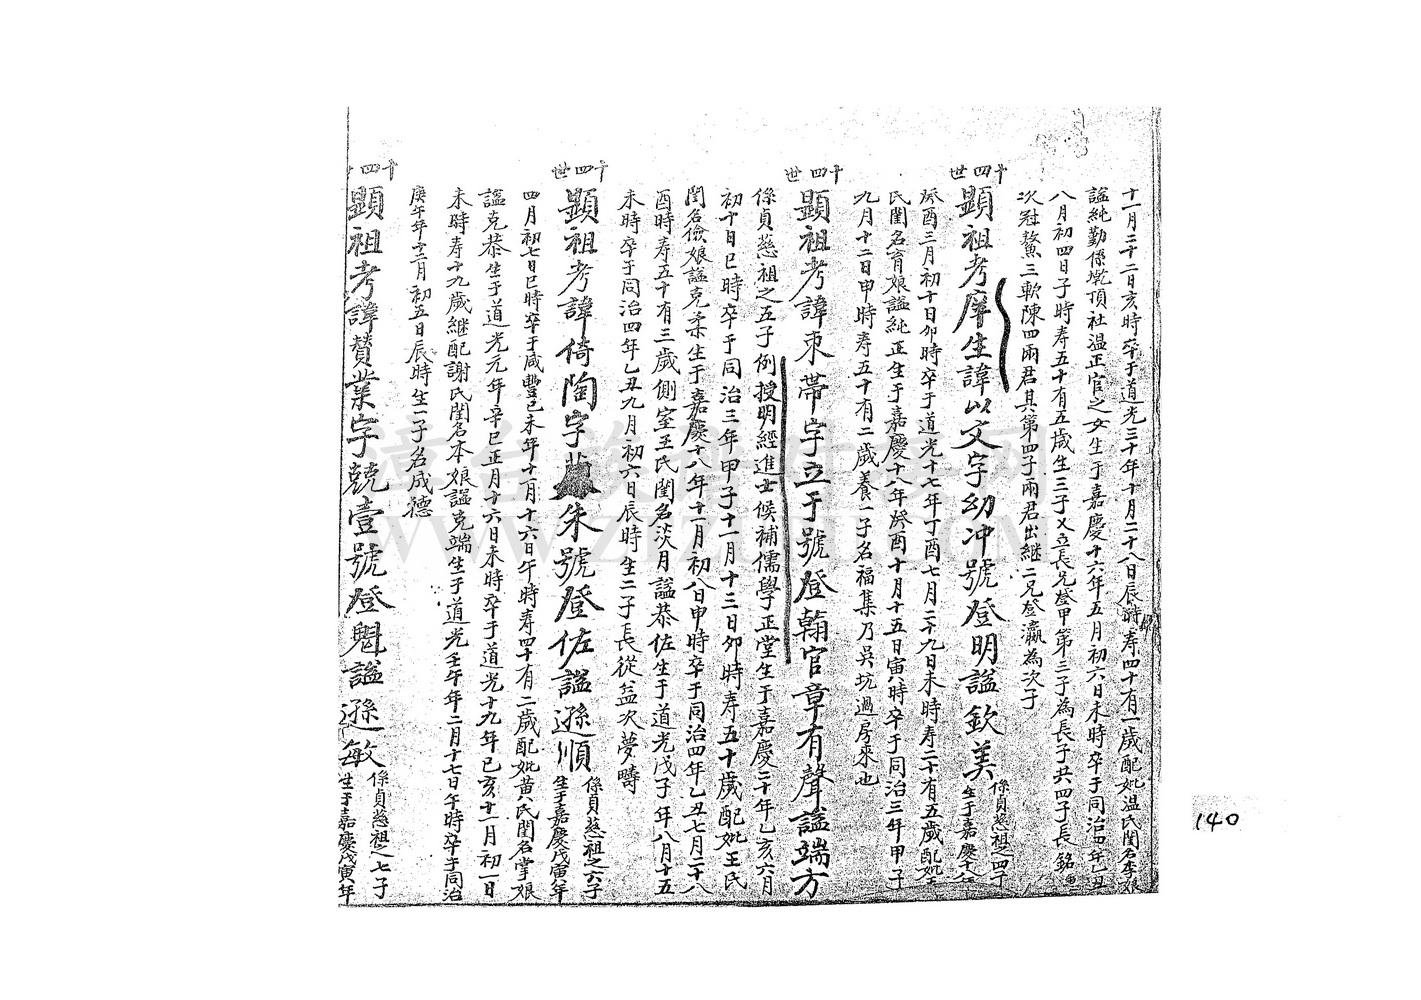 十一月三十二日亥時卒于道光三十年十月二十八日辰時寿四十有一歲配妣温氏閨名李娘
謚純勤係墩頂社温正官之女生于嘉慶十六年五月初六日未時卒于同治四年乙丑
八月初四日子時寿五十有五歲生三子又立長兄登甲第三子為長子共四子長銘
次冠鰲三軟陳四兩君其第四子兩君出継二兄登瀛為次子
十四世
顕祖考庠生諱以文字幼冲號登明謚欽美
係貞慈祖之四子
生于嘉慶十八年
癸酉三月初十日卯時卒于道光十七年丁酉七月二十九日未時寿二十有五歲配妣王
氏閨名育娘謚純正生于嘉慶十八年癸酉十月十五日寅時卒于同治三年甲子
九月十二日申時寿五十有二歲養一子名福集乃吳坑過房來也
十四世
顕祖考諱束帶字立于號登翰官章有聲謚端方
係貞慈祖之五子例授明經進士候補儒學正堂生于嘉慶二十年乙亥六月
初十日巳時卒于同治三年甲子十一月十三日卯時寿五十歲配妣王氏
閨名儉娘謚克柔生于嘉慶十八年十一月初八日申時卒于同治四年乙丑七月二十八
酉時寿五十有三歲側室王氏閨名淡月謚恭佐生于道光戊子年八月十五
未時卒于同治四年乙丑九月初六日辰時生二子長從益次夢疇
十四世
顕祖考諱倚陶字朱號登佐謚遜順
係貞慈祖之六子
生于嘉慶戊寅年
四月初七日巳時卒于咸豐己未年十一月十六日午時寿四十有二歲配妣黄氏閨名掌娘
謚克恭生于道光元年辛巳正月十六日未時卒于道光十九年己亥十一月初一日
未時寿十九歲継配謝氏閨名本娘謚克端生于道光壬午年二月十七日午時卒于同治
庚午年十二月初五日辰時生一子名咸德
十四世
顕祖考諱贊業字兢壹號登魁謚遜敏
係貞慈祖之七子
生于嘉慶戊寅年
140